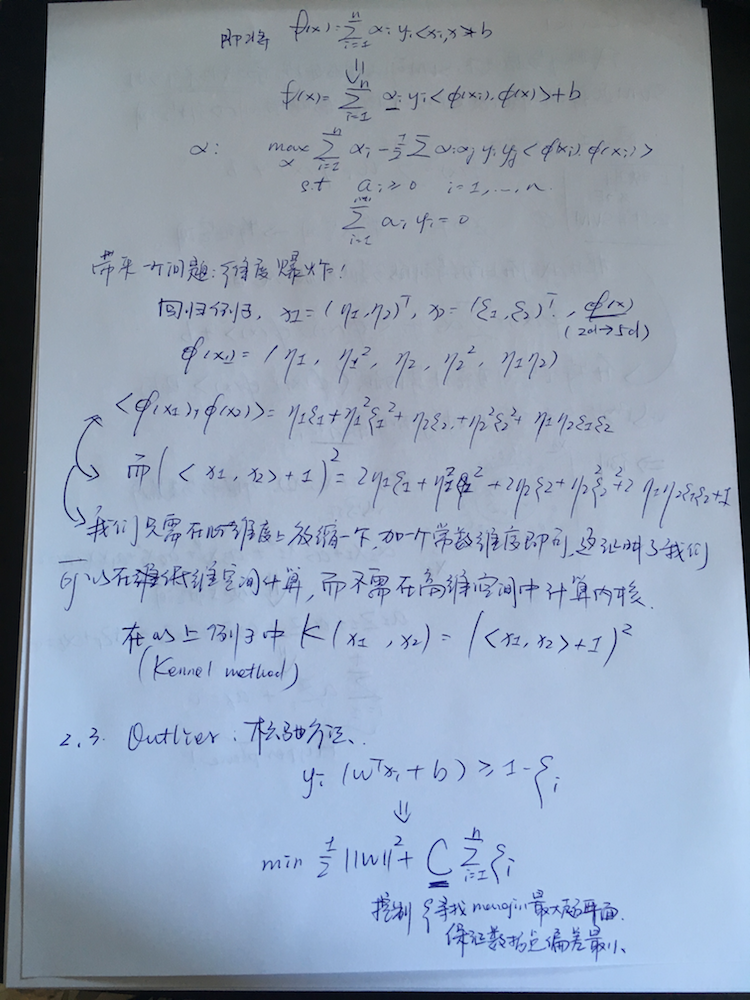 即将 f(x)=∑_{i=1}^{n} αi yi <xi, x>+b
⇓
f(x)=∑_{i=1}^{n} αi yi <ϕ(xi), ϕ(x)>+b
α: max_α ∑_{i=1}^{n} αi - 1/2 ∑ αi αj yi yj <ϕ(xi), ϕ(xj)>
s.t ai ≥ 0 i=1,...,n.
∑_{i=1} ai yi = 0
带来一个问题:维度爆炸!
回归例子, x1=(η1,η2)^T, x2=(ξ1,ξ2)^T, ϕ(x)
(2d→5d)
ϕ(x1)=(η1, η1^2, η2, η2^2, η1η2)
<ϕ(x1), ϕ(x2)>= η1ξ1+η1^2ξ1^2+η2ξ2+η2^2ξ2^2+η1η2ξ1ξ2
而(<x1, x2>+1)^2=2η1ξ1+η1^2ξ1^2+2η2ξ2+η2^2ξ2^2+2η1η2ξ1ξ2+1
我们只需在 维度上放缩一下,加一个常数维度即可,这证明了我们
可以在低维空间计算,而不需在高维空间中计算内核.
在以上例子中 K(x1, x2)=(<x1, x2>+1)^2
(Kernel method)
2.3. Outlier: 松弛方法.
yi (w^T xi+b) ≥ 1-ξi
⇓
min 1/2 ||w||^2+C ∑_{i=1}^{n} ξi
控制 { 寻找 margin 最大 平面.
保证数据点偏差最小.